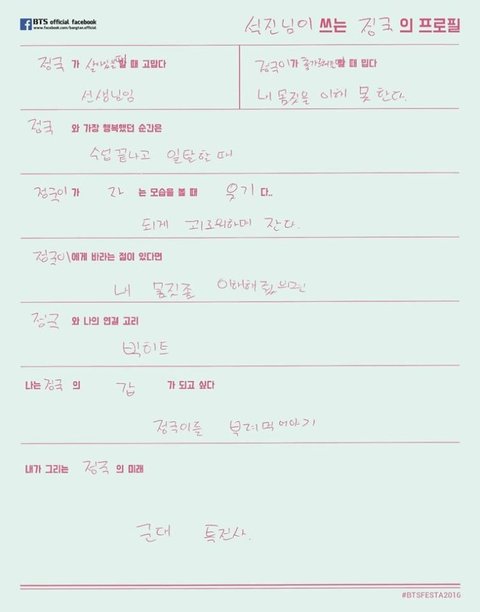 BTS official facebook
www.facebook.com/bangtan.official
석진님이 쓰는 정국 의 프로필
정국 가 할 때 고맙다
선생님임
정국이가 할 때 밉다
내 몸짓을 이해 못 한다.
정국 와 가장 행복했던 순간은
수업 끝나고 일탈한 때
정국이 가 자 는 모습을 볼 때 웃기 다..
되게 괴로워하며 잔다.
정국이에게 바라는 점이 있다면
내 몸짓좀
정국 와 나의 연결 고리
빅히트
나는 정국 의 갑 가 되고 싶다
정국이를 부려먹어야기
내가 그리는 정국 의 미래
군대 특전사.
#BTSFESTA2016